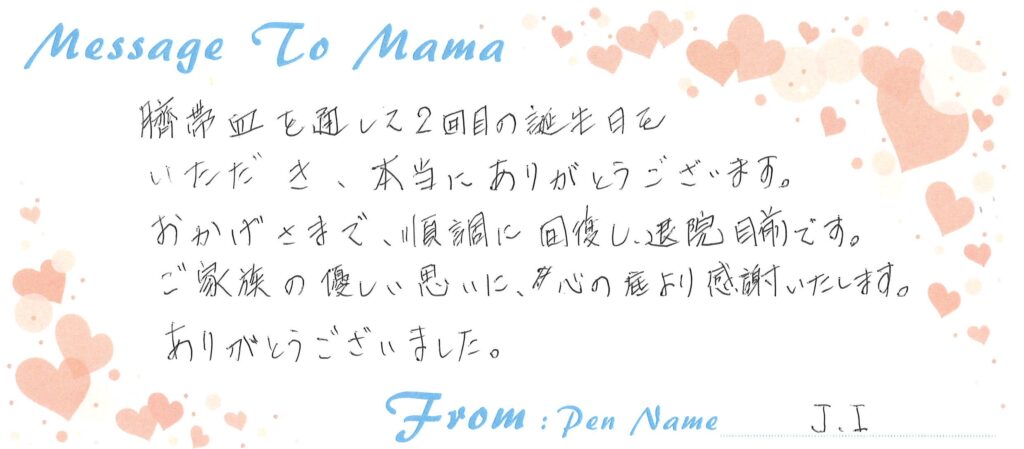 Message To Mama
臍帯血を通して2回目の誕生日を
いただき、本当にありがとうございます。
おかげさまで、順調に回復し、退院目前です。
ご家族の優しい思いに、心の底より感謝いたします。
ありがとうございました。
From : Pen Name J.I